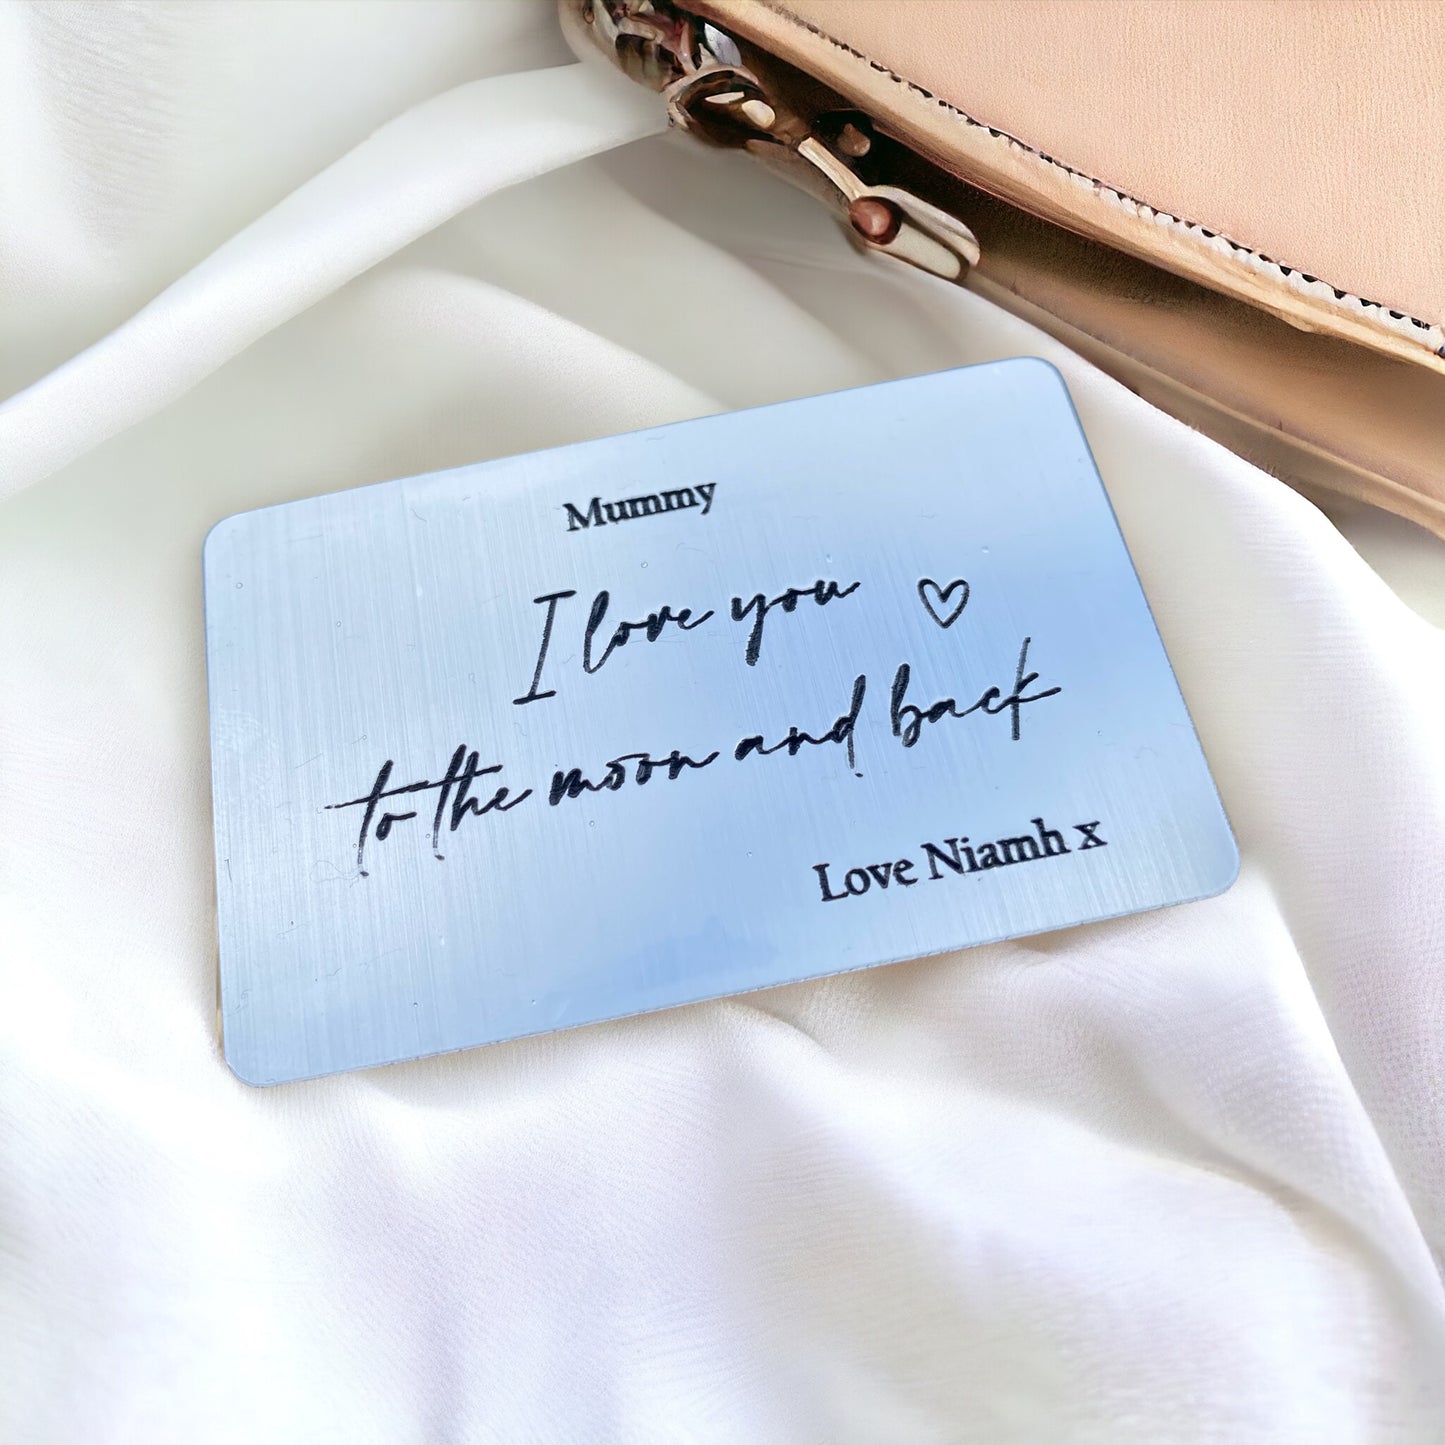 Mummy
I love you ♡
to the moon and back
Love Niamh x